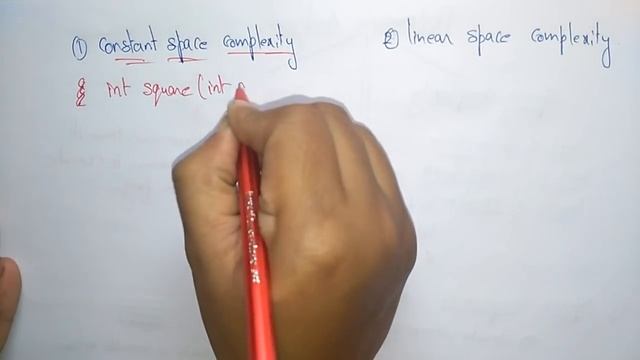 ① constant space complexity
② linear space complexity
int square (int